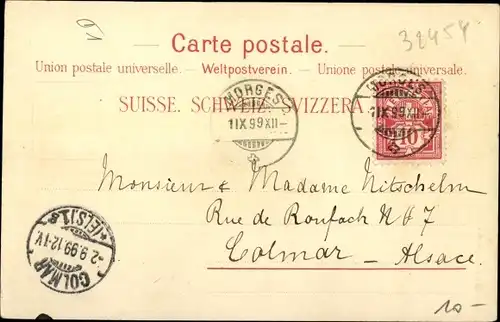 01
32454
Carte postale.
Union postale universelle. — Weltpostverein. — Unione postale universale.
SUISSE. SCHWEIZ. SVIZZERA
MORGES
1 IX 99 XII-
MORGES
1 IX 99 XII-
10
Monsieur & Madame Nitschelm
Rue de Roufach No 7
Colmar - Alsace.
COLMAR
-2.9.99.12-1V.
*(ELS)1*
10-